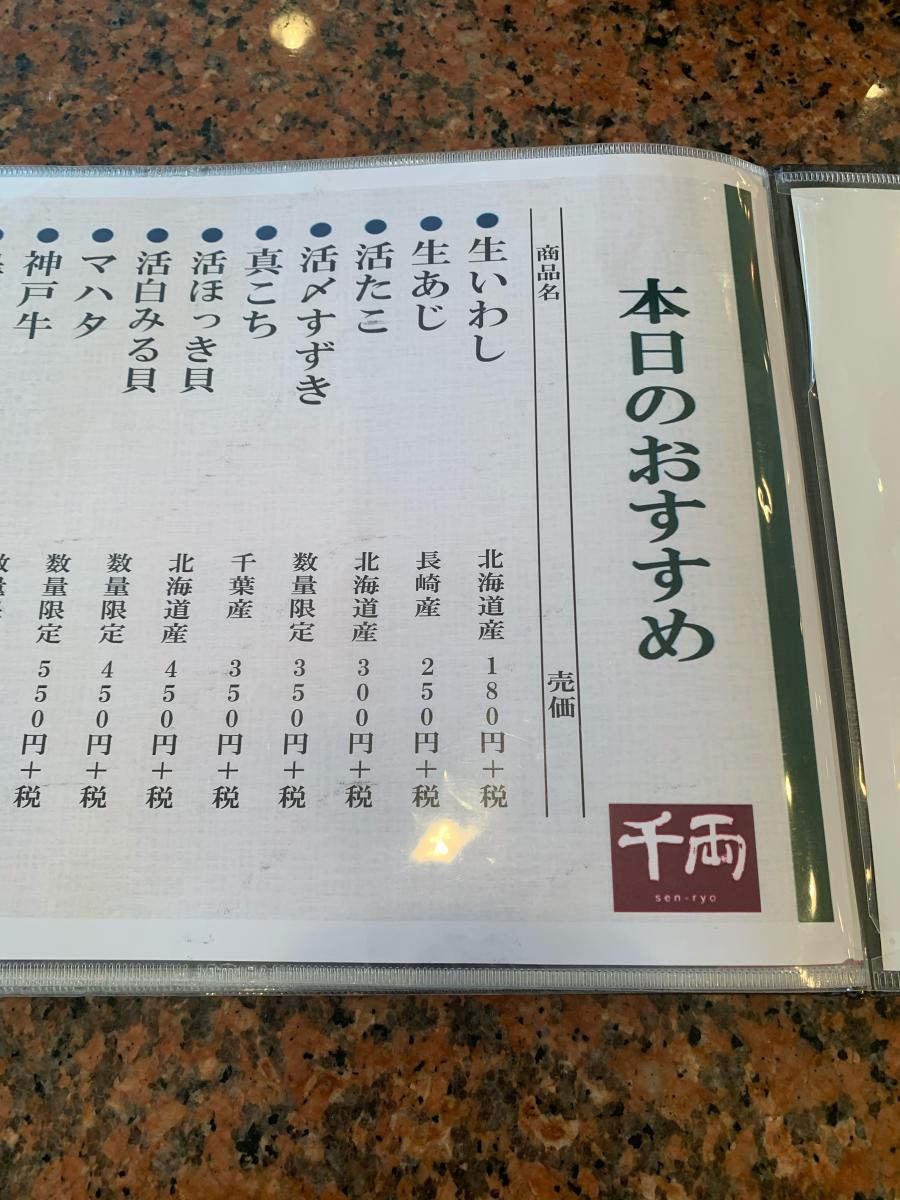 本日のおすすめ
千両
sen-ryo
商品名 売価
●生いわし 北海道産 180円+税
●生あじ 長崎産 250円+税
●活たこ 北海道産 300円+税
●活〆すずき 数量限定 350円+税
●真こち 千葉産 350円+税
●活ほっき貝 北海道産 450円+税
●活白みる貝 数量限定 450円+税
●マハタ 数量限定 550円+税
●神戸牛